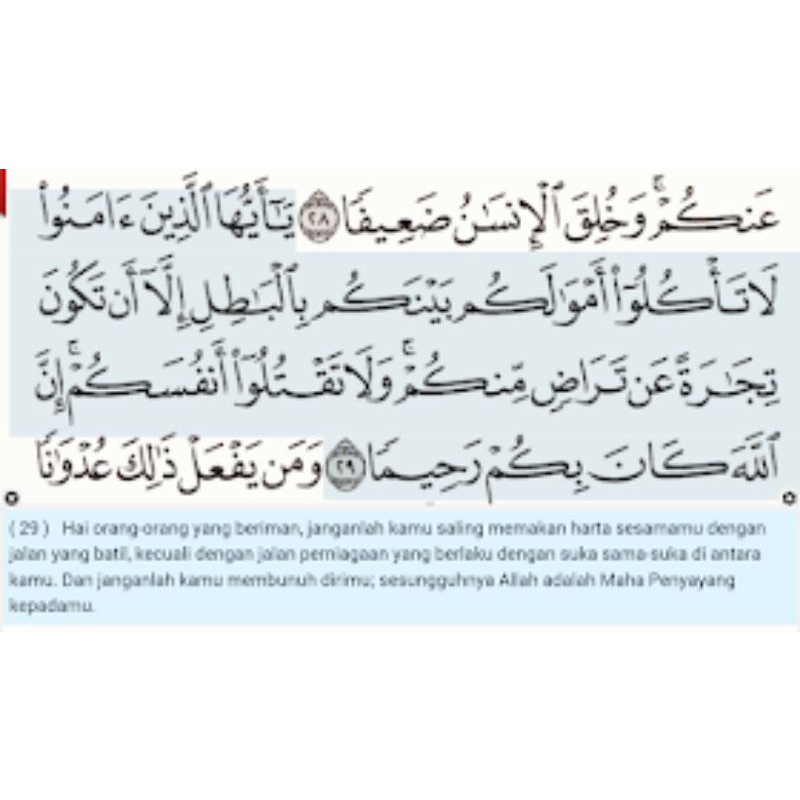 عَنكُمْ ۚ وَخُلِقَ ٱلْإِنسَٰنُ ضَعِيفًا ٢٨ يَٰٓأَيُّهَا ٱلَّذِينَ ءَامَنُوا۟
لَا تَأْكُلُوٓا۟ أَمْوَٰلَكُم بَيْنَكُم بِٱلْبَٰطِلِ إِلَّآ أَن تَكُونَ
تِجَٰرَةً عَن تَرَاضٍ مِّنكُمْ ۚ وَلَا تَقْتُلُوٓا۟ أَنفُسَكُمْ ۚ إِنَّ
ٱللَّهَ كَانَ بِكُمْ رَحِيمًا ٢٩ وَمَن يَفْعَلْ ذَٰلِكَ عُدْوَٰنًا
( 29 ) Hai orang-orang yang beriman, janganlah kamu saling memakan harta sesamamu dengan
jalan yang batil, kecuali dengan jalan perniagaan yang berlaku dengan suka sama-suka di antara
kamu. Dan janganlah kamu membunuh dirimu; sesungguhnya Allah adalah Maha Penyayang
kepadamu.